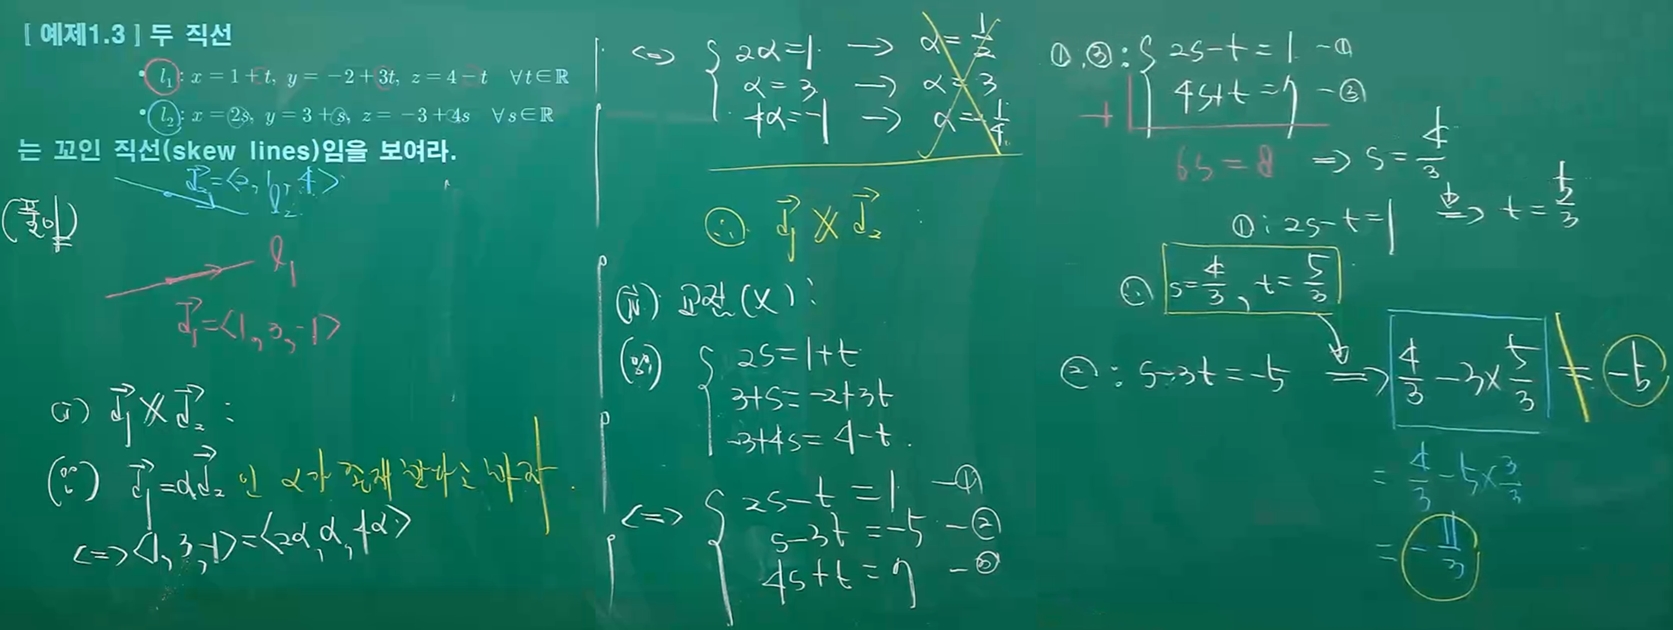 [ 예제1.3 ] 두 직선
• l₁: x = 1 + t, y = −2 + 3t, z = 4 − t ∀t∈ℝ
• l₂: x = 2s, y = 3 + s, z = −3 + 4s ∀s∈ℝ
는 꼬인 직선(skew lines)임을 보여라.
(풀이)
d⃗₂=<2, 1, 4>
l₂
l₁
d⃗₁=<1, 3, -1>
(i) d⃗₁ ∦ d⃗₂ :
(∵) d⃗₁=αd⃗₂ 인 α가 존재한다고 하자.
<=> <1, 3, -1>=<2α, α, 4α>
<=> { 2α=1 → α=1/2
α=3 → α=3
4α=-1 → α=-1/4
∴ d⃗₁ ∦ d⃗₂ :
(ii) 교점(X) :
(∵) { 2s=1+t
3+s=-2+3t
-3+4s=4-t.
<=> { 2s-t=1 -①
s-3t=-5 -②
4s+t=7 -③
①,③ : { 2s-t=1 -①
4s+t=7 -③
+
6s=8 => s=4/3
①: 2s-t=1 => t=5/3
∴ s=4/3, t=5/3
②: s-3t=-5 => 4/3-3×5/3 ≠ -5
=4/3-5×3/3
=-11/3